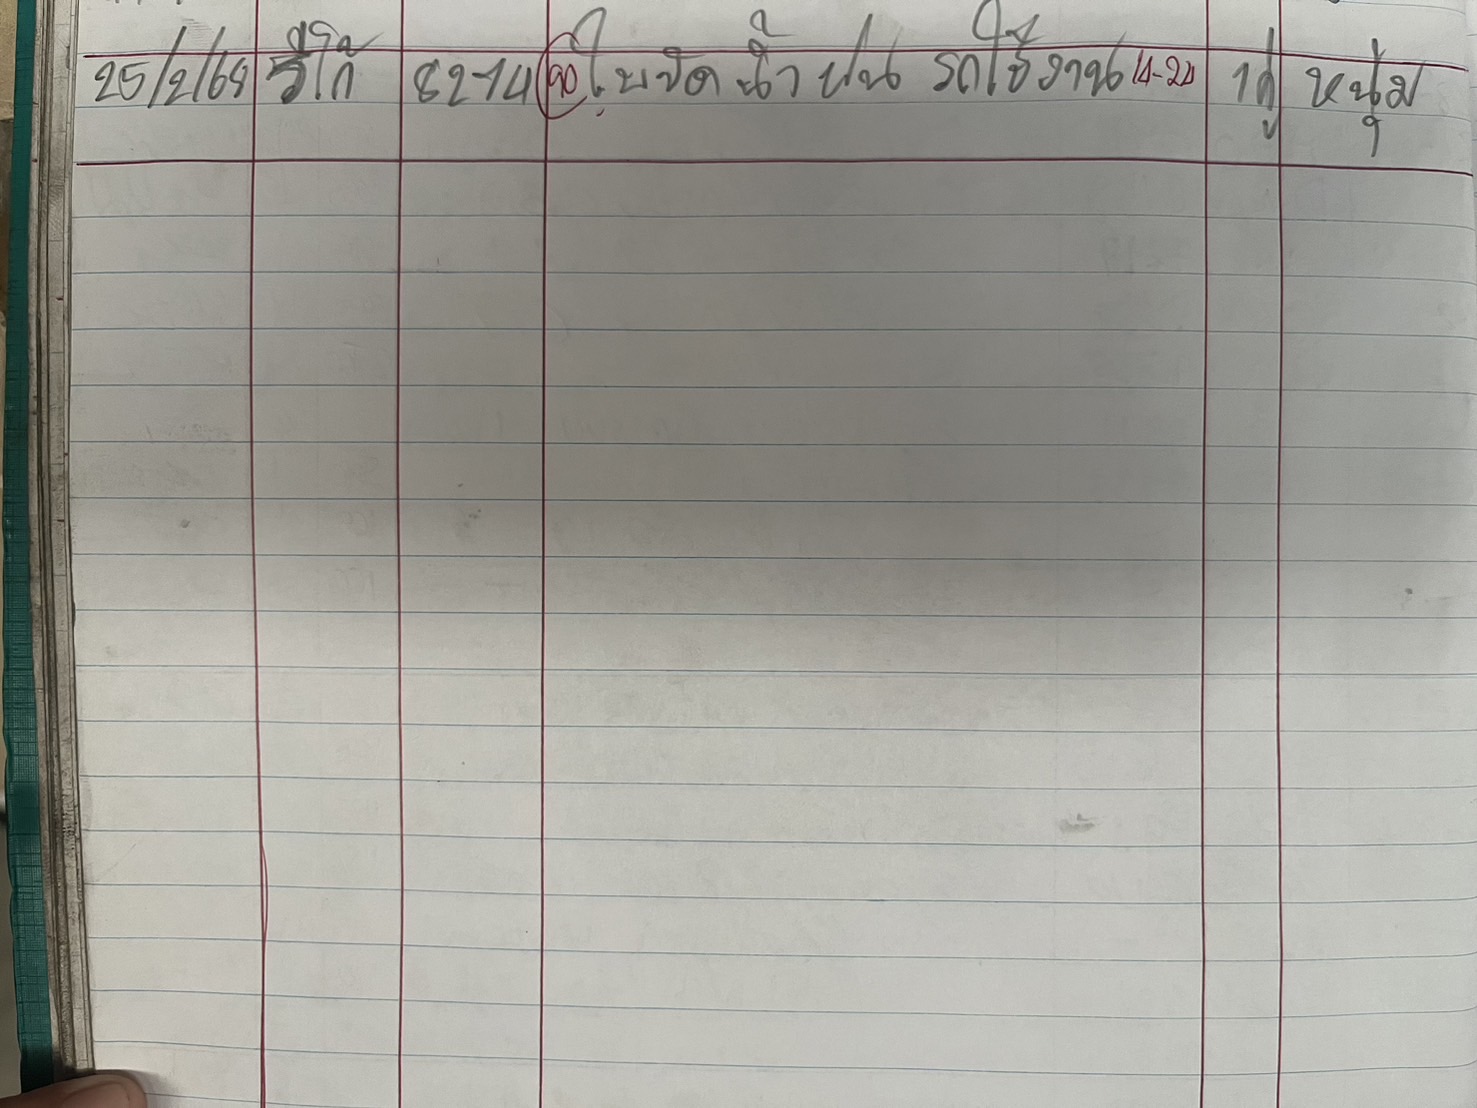 25/2/68 82-74 90 ใบปัดน้ำฝน รถใช้งาน 14-24 1คู่ หนุ่ม